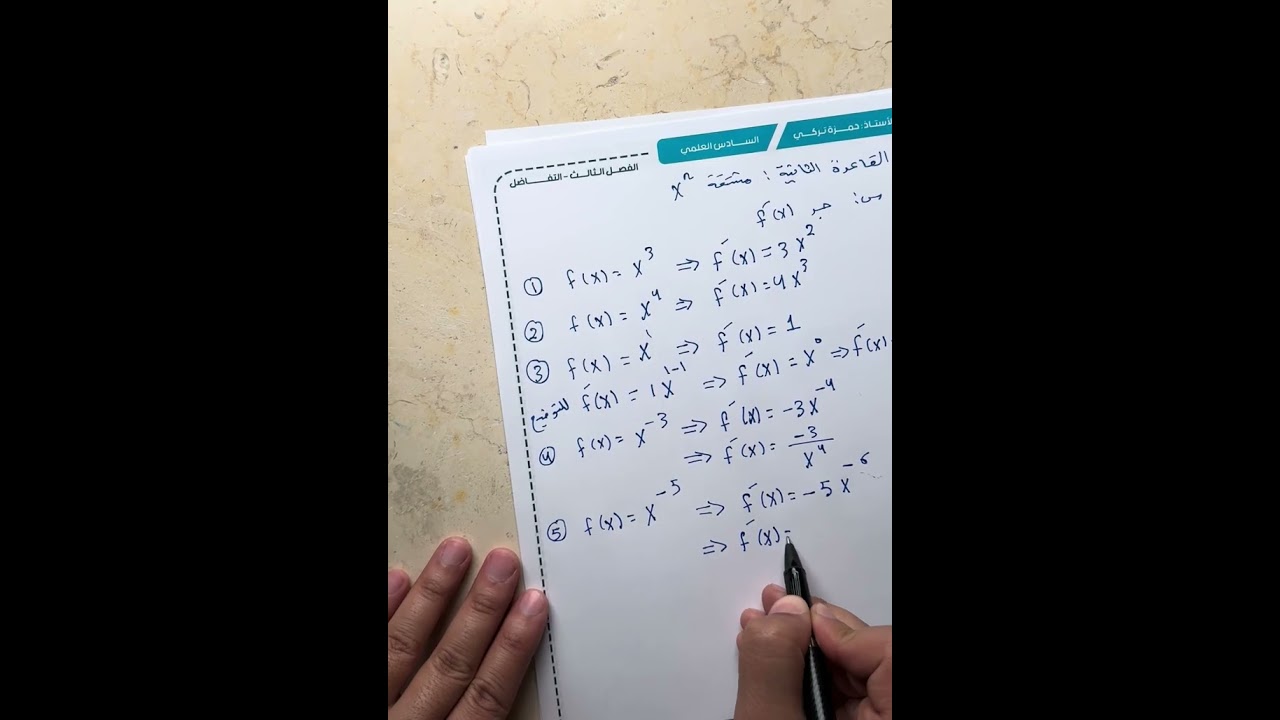 الأستاذ : حمزة تركي
السادس العلمي
الفصل الثالث - التفاضل
القاعدة الثانية : مشتقة xⁿ
س: جد f́(x)
① f(x) = x³ ⇒ f́(x) = 3x²
② f(x) = x⁴ ⇒ f́(x) = 4x³
③ f(x) = x¹ ⇒ f́(x) = 1
للتوضيح f́(x) = 1x¹⁻¹ ⇒ f́(x) = x⁰ ⇒ f́(x) =
④ f(x) = x⁻³ ⇒ f́(x) = -3x⁻⁴
⇒ f́(x) = -3/x⁴
⑤ f(x) = x⁻⁵ ⇒ f́(x) = -5x⁻⁶
⇒ f́(x) =